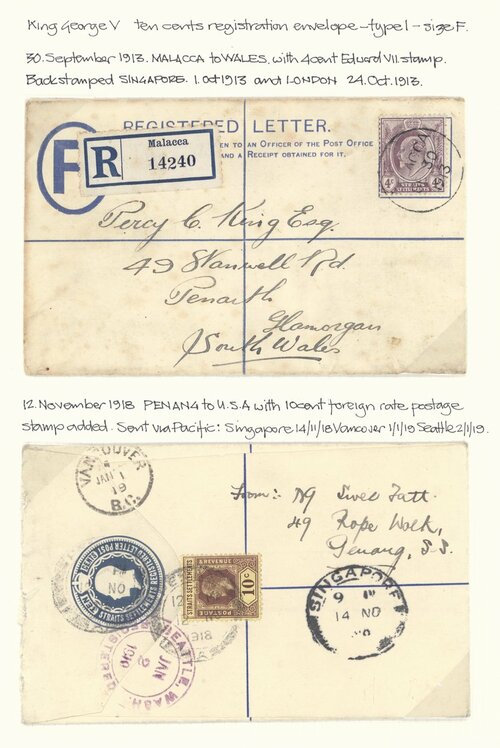 King George V ten cents registration envelope - type 1 - size F.
30. September 1913. MALACCA to WALES, with 4cent Edward VII stamp.
Backstamped SINGAPORE. 1. Oct 1913 and LONDON 24. Oct. 1913.
REGISTERED LETTER.
EN TO AN OFFICER OF THE POST OFFICE
AND A RECEIPT OBTAINED FOR IT.
R
Malacca
14240
4c
Percy C. King Esq.
49 Stanwell Rd.
Penarth
Glamorgan
South Wales
12. November 1918 PENANG to U.S.A with 10cent foreign rate postage
stamp added. Sent via Pacific: Singapore 14/11/18 Vancouver 1/1/19 Seattle 2/1/19.
VANCOUVER
JAN 1
19
B.C.
From:- Ng Swee Fatt.
49 Rope Walk,
Penang, S.S.
STRAITS SETTLEMENTS
REGISTERED LETTER POSTAGE
NO
STRAITS SETTLEMENTS
10c
12
1918
SINGAPORE
9
14 NO
SEATTLE, WASH.
JAN
2
191
REGISTERED